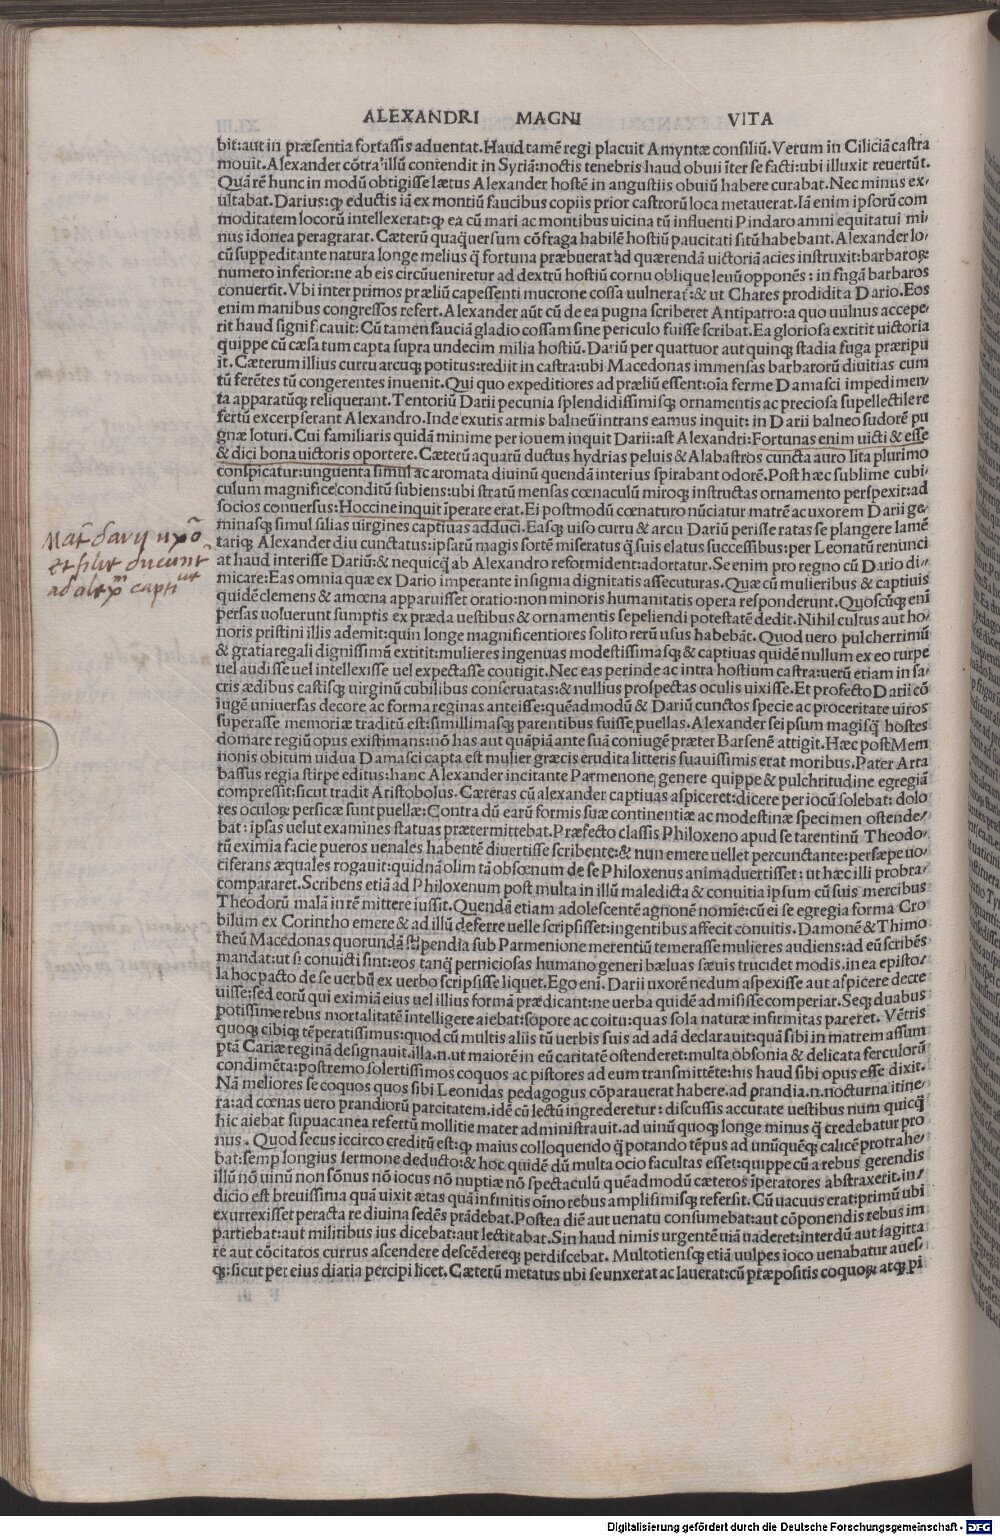 ALEXANDRI MAGNI VITA
bit:aut in præsentia fortassis aduentat. Haud tamē regi placuit Amyntæ consiliū. Verum in Ciliciā castra
mouit. Alexander cōtra illū contendit in Syriā:noctis tenebris haud obuii īter se facti:ubi illuxit reuertūt.
Quā rē hunc in modū obtigisse lætus Alexander hostē in angustiis obuiū habere curabat. Nec minus ex/
ultabat. Darius:qꝫ eductis iā ex montiū faucibus copiis prior castrorū loca metauerat. Iā enim ipsorū com
moditatem locorū intellexerat:qꝫ ea cū mari ac montibus uicina tū influenti Pindaro amni equitatui mi/
nus idonea peragrarat. Cæterū quaq̄uersum cōfraga habilē hostiū paucitati sitū habebant. Alexander lo/
cū suppeditante natura longe melius q̄ fortuna præbuerat ad quærendā uictoriā acies instruxit:barbaroꝝ
numero inferior:ne ab eis circūueniretur ad dextrū hostiū cornu oblique leuū opponēs: in fugā barbaros
conuertit. Vbi inter primos præliū capessenti mucrone cossa uulneratͬ:& ut Chares prodidit a Dario. Eos
enim manibus congressos refert. Alexander aūt cū de ea pugna scriberet Antipatro:a quo uulnus accepe/
rit haud significauit: Cū tamen sauciā gladio cossam sine periculo fuisse scribat. Ea gloriosa extitit uictoria
quippe cū cæsa tum capta supra undecim milia hostiū. Dariū per quattuor aut quinqꝫ stadia fuga præripu
it. Cæterum illius curru arcuqꝫ potitus:rediit in castra:ubi Macedonas immensas barbarorū diuitias cum
tū ferētes tū congerentes inuenit. Qui quo expeditiores ad præliū essent:oīa ferme Damasci impedimen/
ta apparatūqꝫ reliquerant. Tentoriū Darii pecunia splendidissimisqꝫ ornamentis ac preciosa supellectile re
fertū excerpserant Alexandro. Inde exutis armis balneū intrans eamus inquit: in Darii balneo sudorē pu
gnæ loturi. Cui familiaris quidā minime per iouem inquit Darii:ast Alexandri:Fortunas enim uicti & esse
& dici bona uictoris oportere. Cæterū aquarū ductus hydrias peluis & Alabastros cuncta auro lita plurimo
conspicatur:unguenta simul ac aromata diuinū quendā interius spirabant odorē. Post hæc sublime cubi/
culum magnifice conditū subiens:ubi stratū mensas cœnaculū miroqꝫ instructas ornamento perspexit:ad
socios conuersus:Hoccine inquit īperare erat. Ei postmodū cœnaturo nūciatur matrē ac uxorem Darii ge/
minasqꝫ simul filias uirgines captiuas adduci. Easqꝫ uiso curru & arcu Dariū periisse ratas se plangere lamē
tariqꝫ Alexander diu cunctatus:ipsarū magis sortē miseratus q̄ suis elatus successibus:per Leonatū renunci
at haud interisse Dariū:& nequicq̄ ab Alexandro reformident:adortatur. Se enim pro regno cū Dario di/
micare:Eas omnia quæ ex Dario imperante insignia dignitatis assecuturas. Quæ cū mulieribus & captiuis
quidē clemens & amœna apparuisset oratio:non minoris humanitatis opera responderunt. Quoscūqꝫ enī
persas uoluerunt sumptis ex præda uestibus & ornamentis sepeliendi potestatē dedit. Nihil cultus aut ho/
noris pristini illis ademit:quin longe magnificentiores solito rerū usus habebāt. Quod uero pulcherrimū
& gratia regali dignissimū extitit:mulieres ingenuas modestissimasqꝫ & captiuas quidē nullum ex eo turpe
uel audisse uel intellexisse uel expectasse contigit. Nec eas perinde ac intra hostium castra:uerū etiam in sa/
cris ædibus castisqꝫ uirginū cubilibus conseruatas:& nullius prospectas oculis uixisse. Et profecto Darii cō
iugē uniuersas decore ac forma reginas anteisse:quēadmodū & Dariū cunctos specie ac proceritate uiros
superasse memoriæ traditū est:simillimasqꝫ parentibus fuisse puellas. Alexander seipsum magisq̄ hostes
domare regiū opus existimans:nō has aut quāpiā ante suā coniugē præter Barsenē attigit. Hæc post Mem
nonis obitum uidua Damasci capta est mulier græcis erudita litteris suauissimis erat moribus. Pater Arta
bassus regia stirpe editus:hanc Alexander incitante Parmenone genere quippe & pulchritudine egregiā
compressit:sicut tradit Aristobolus. Cæteras cū alexander captiuas aspiceret:dicere per iocū solebat: dolo
res oculoꝝ persicæ sunt puellæ: Contra dū earū formis suæ continentiæ ac modestinæ specimen ostende/
bat:ipsas uelut examines statuas prætermittebat. Præfecto classis Philoxeno apud se tarentinū Theodo/
tū eximia facie pueros uenales habentē diuertisse scribente:& nun emere uellet percunctante:persæpe uo/
ciferans æquales rogauit:quidnā olim tā obscœnum de se Philoxenus animaduertisset: ut hæc illi probra/
compararet. Scribens etiā ad Philoxenum post multa in illū maledicta & conuitia ipsum cū suis mercibus
Theodorū malā in rē mittere iussit. Quendā etiam adolescentē agnonē nomīe:cū ei se egregia forma Cro
bilum ex Corintho emere & ad illū deferre uelle scripsisset:ingentibus affecit conuitis. Damonē & Thimo
theū Macedonas quorundā stipendia sub Parmenione merentiū temerasse mulieres audiens:ad eū scribēs
mandat:ut si conuicti sint:eos tanq̄ perniciosas humano generi bæluas sæuis trucidet modis.in ea episto/
la hoc pacto de se uerbū ex uerbo scripsisse liquet. Ego enī. Darii uxorē nedum aspexisse aut aspicere decre
uisse:sed eorū qui eximiā eius uel illius formā prædicant:ne uerba quidē admisisse comperiar. Seqꝫ duabus
potissime rebus mortalitatē intelligere aiebat:sopore ac coitu:quas sola naturæ infirmitas pareret. Vētris
quoqꝫ cibiqꝫ tēperatissimus:quod cū multis aliis tū uerbis suis ad adā declarauit:quā sibi in matrem assum
ptā Cariæ reginā designauit.illa.n.ut maiorē in eū caritatē ostenderet:multa obsonia & delicata ferculorū
condimēta:postremo solertissimos coquos ac pistores ad eum transmittēte:his haud sibi opus esse dixit.
Nā meliores se coquos quos sibi Leonidas pedagogus cōparauerat habere.ad prandia.n.nocturna itine/
ra:ad cœnas uero prandiorū parcitatem.idē cū lectū ingrederetur: discussis accurate uestibus num quicq̄
hic aiebat supuacanea refertū mollitie mater administrauit.ad uinū quoqꝫ longe minus q̄ credebatur pro
nus. Quod secus iccirco creditū est:qꝫ maius colloquendo q̄ potando tēpus ad unūquēqꝫ calicē protrahe/
bat:semp longius sermone deducto:& hoc quidē dū multa ocio facultas esset:quippe cū a rebus gerendis
illū nō uinū non sōnus nō iocus nō nuptiæ nō spectaculū quēadmodū cæteros īperatores abstraxerit.in/
dicio est breuissima quā uixit ætas quā infinitis oīno rebus amplisimisqꝫ refersit. Cū uacuus erat:primū ubi
exurrexisset peracta re diuina sedēs prādebat. Postea diē aut uenatu consumebat:aut cōponendis rebus im
partiebat:aut militibus ius dicebat:aut lectitabat. Sin haud nimis urgentē uiā uaderet:interdū aut sagitta
re aut cōcitatos currus ascendere descēdereqꝫ perdiscebat. Multotiensqꝫ etiā uulpes ioco uenabatur aues/
qꝫ:sicut per eius diaria percipi licet. Cæterū metatus ubi se unxerat ac lauerat:cū præpositis coquoꝝ atqꝫ pi
Mat̃ darij uxõ
et filie ducunt̃
ad alexm captiue
Digitalisierung gefördert durch die Deutsche Forschungsgemeinschaft - DFG